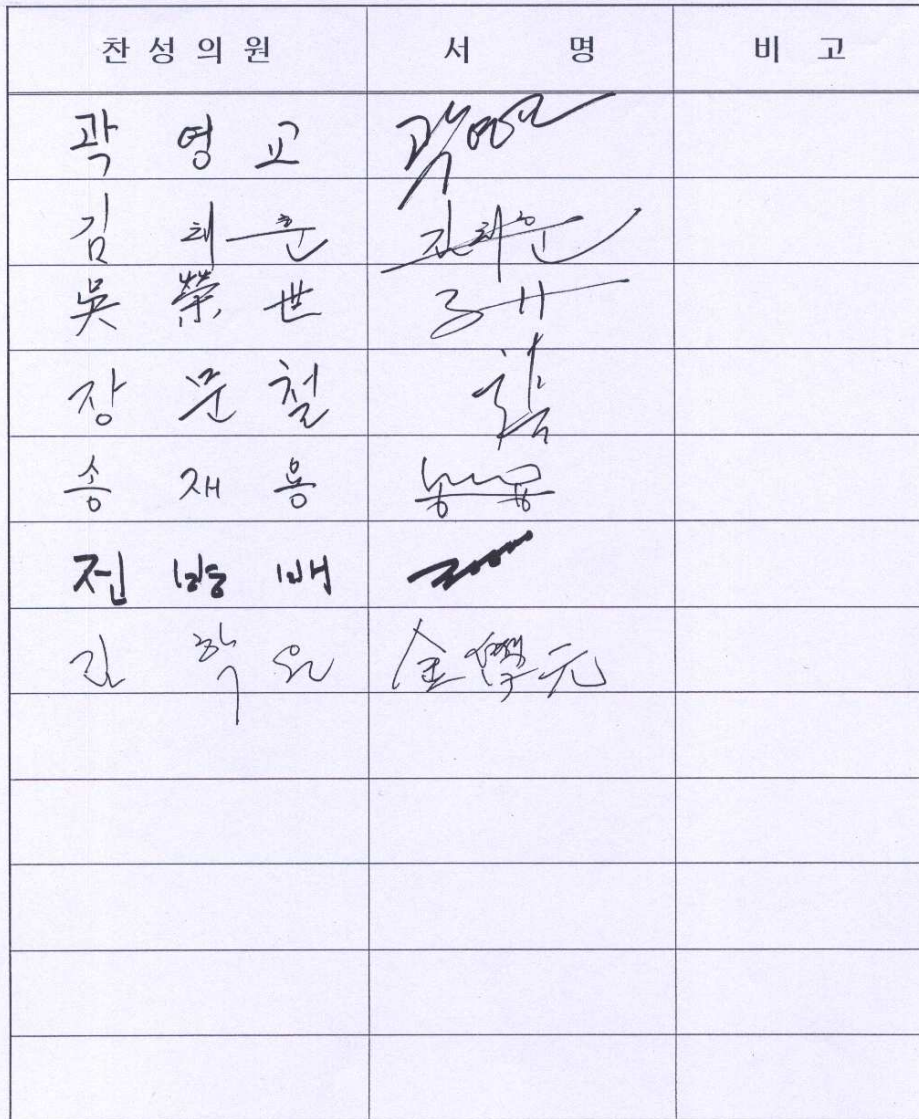 찬성의원 서 명 비 고
곽 영 교 곽영교
김 태 훈 김태훈
吳 榮 世
장 문 철
송 재 용
전 병 배
김 학 원 金學元